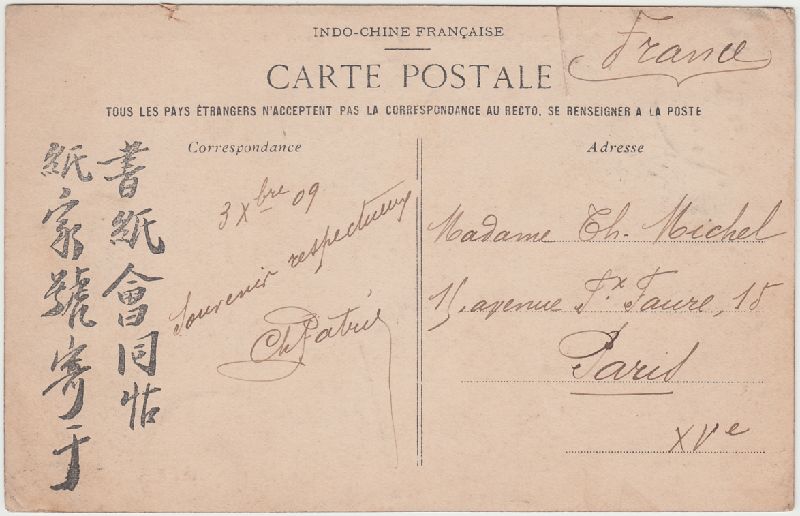 INDO-CHINE FRANÇAISE
CARTE POSTALE
France
TOUS LES PAYS ÉTRANGERS N'ACCEPTENT PAS LA CORRESPONDANCE AU RECTO. SE RENSEIGNER A LA POSTE
Correspondance
Adresse
書紙會同帖
紙家號寄于
3 Xbre 09
Souvenir respectueux
Ch Patris
Madame Th. Michel
15, avenue Fx Faure, 15
Paris
XVe